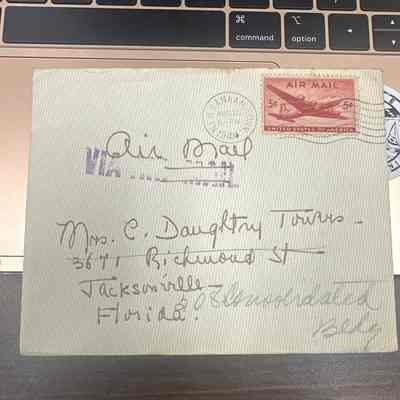 ⌘
command
⌥
option
AIR MAIL
5¢ 5¢
UNITED STATES OF AMERICA
Air Mail
VIA AIR MAIL
Mrs. C. Daughtry Towers
3671 Richmond St
Jacksonville
Florida.
308 Consolidated
Bldg